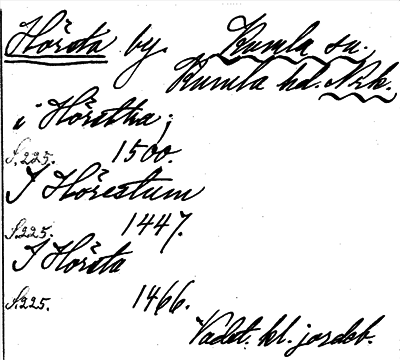 Hörsta by. Kumla sn.
Kumla hd. Nrk.
i Hörsttha;
S. 225. 1500.
J Hörestum
S. 225. 1447.
J Hörsta
S. 225. 1466.
Vadst. kl. jordeb.